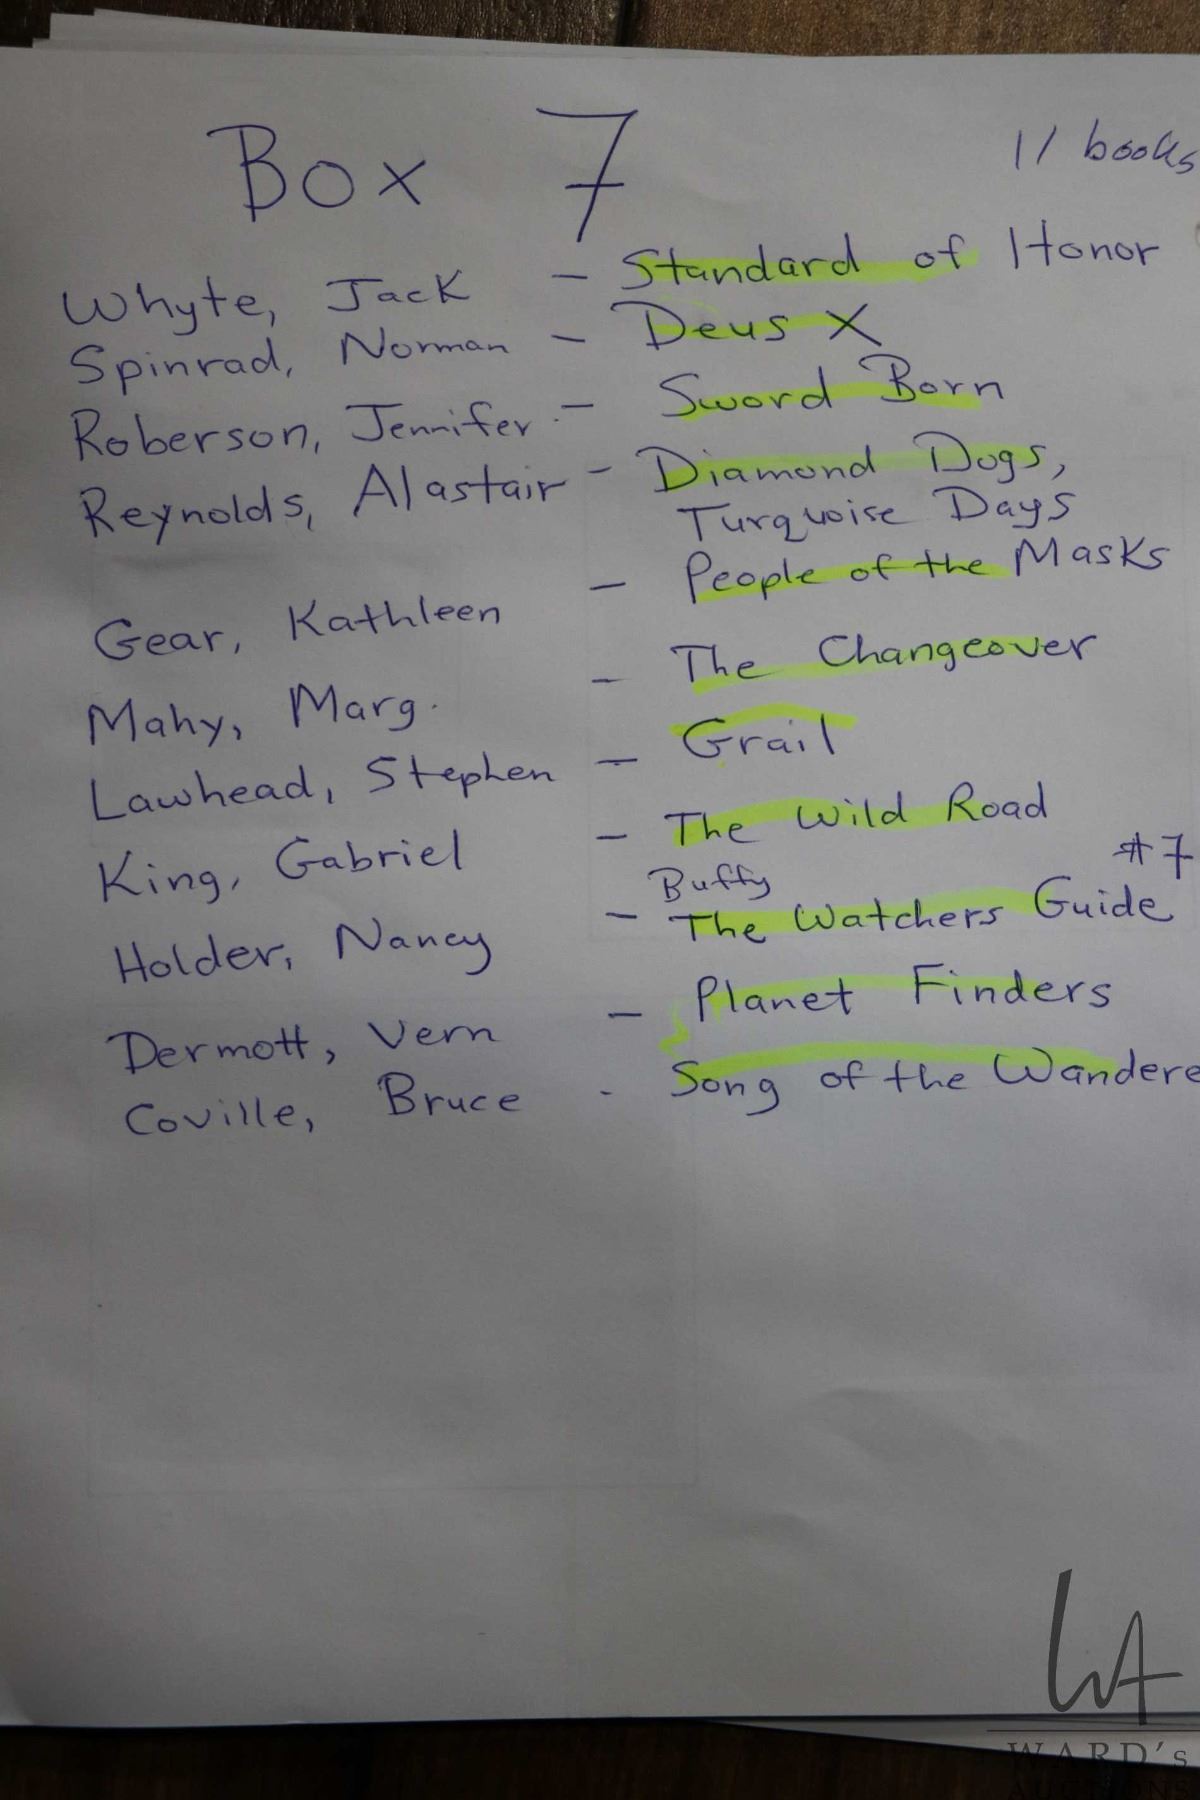 Box 7
11 books
Whyte, Jack - Standard of Honor
Spinrad, Norman - Deus X
Roberson, Jennifer - Sword Born
Reynolds, Alastair - Diamond Dogs,
Turquoise Days
Gear, Kathleen - People of the Masks
Mahy, Marg. - The Changeover
Lawhead, Stephen - Grail
King, Gabriel - The Wild Road
#7
Buffy
Holder, Nancy - The Watchers Guide
Dermott, Vern - Planet Finders
Coville, Bruce - Song of the Wandere
WA
WARD's
AUCTIONS